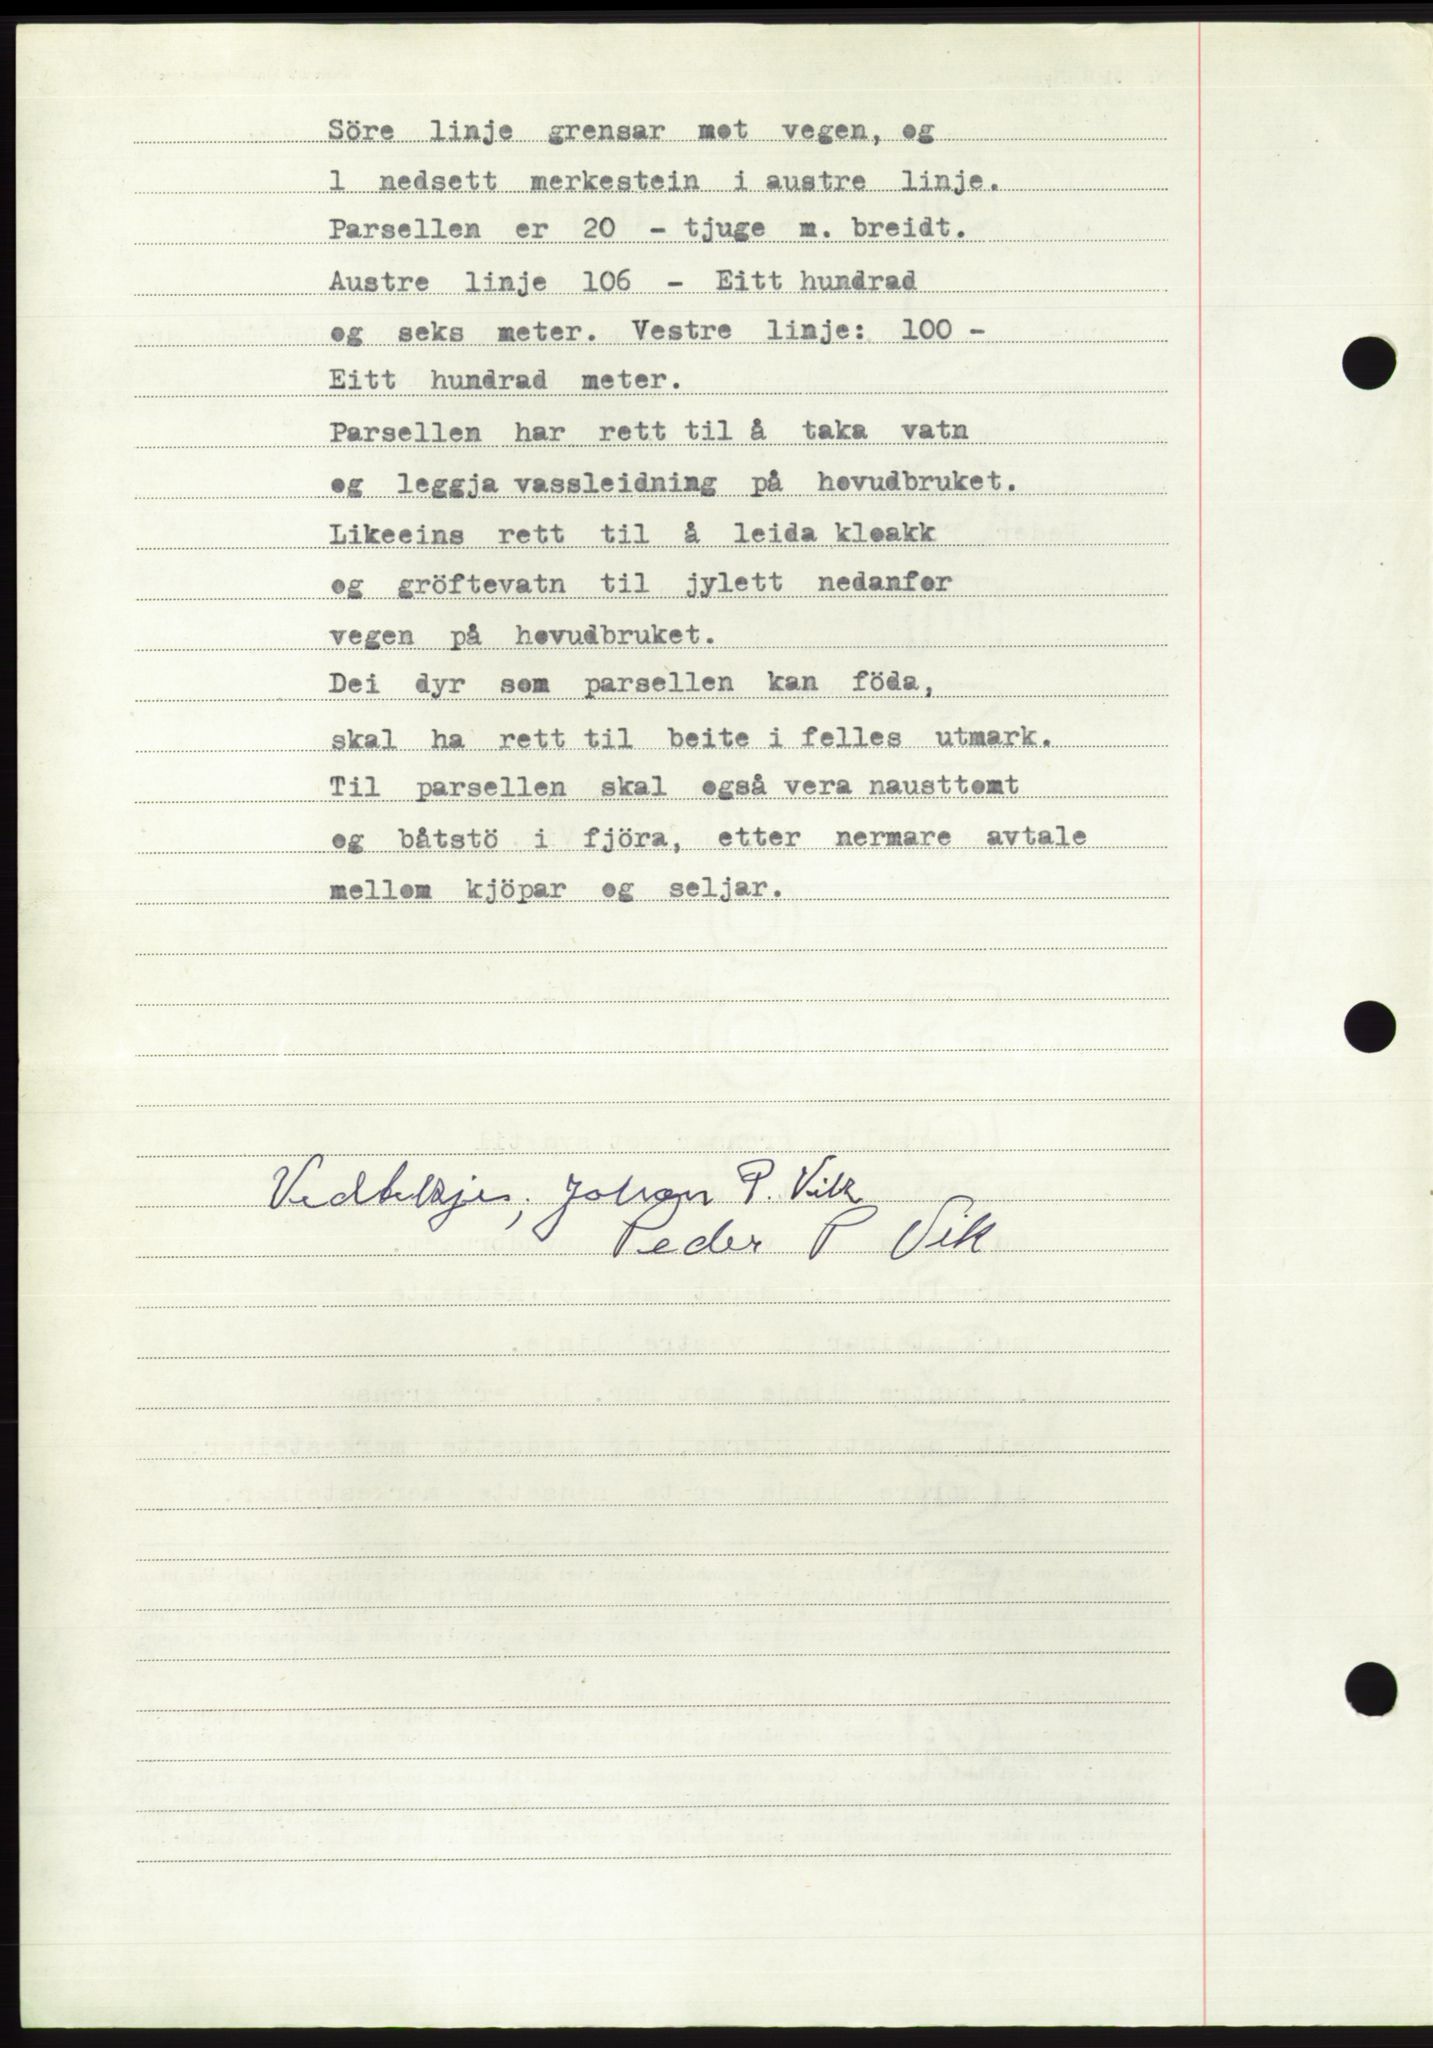 Söre linje grensar mot vegen, og
1 nedsett merkestein i austre linje.
Parsellen er 20 - tjuge m. breidt.
Austre linje 106 - Eitt hundrad
og seks meter. Vestre linje: 100 -
Eitt hundrad meter.
Parsellen har rett til å taka vatn
og leggja vassleidning på hovudbruket.
Likeeins rett til å leida kloakk
og gröftevatn til jylett nedanfor
vegen på hovudbruket.
Dei dyr som parsellen kan föda,
skal ha rett til beite i felles utmark.
Til parsellen skal også vera nausttomt
og båtstö i fjöra, etter nermare avtale
mellom kjöpar og seljar.
Vedtekjes, Johan P. Vik
Peder P Vik